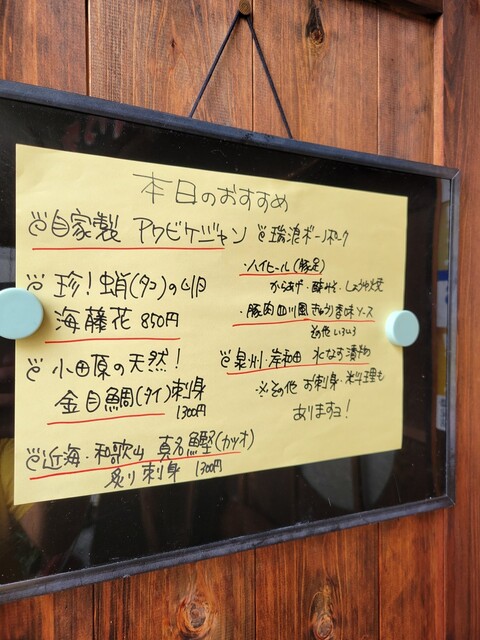 本日のおすすめ
自家製 アワビケジャン
珍!蛸(タコ)の卵
海藤花 850円
小田原の天然!
金目鯛(タイ)刺身
1300円
近海・和歌山 真名鰹(カツオ)
炙り刺身 1300円
瑞浪ボーノポーク
・ハイヒール(豚足)
からあげ・酢みそ・しょうゆ焼
・豚肉四川風きゅうり香味ソース
その他いろいろ
泉州・岸和田 水なす漬物
※その他 お刺身・料理も
ありますョ!